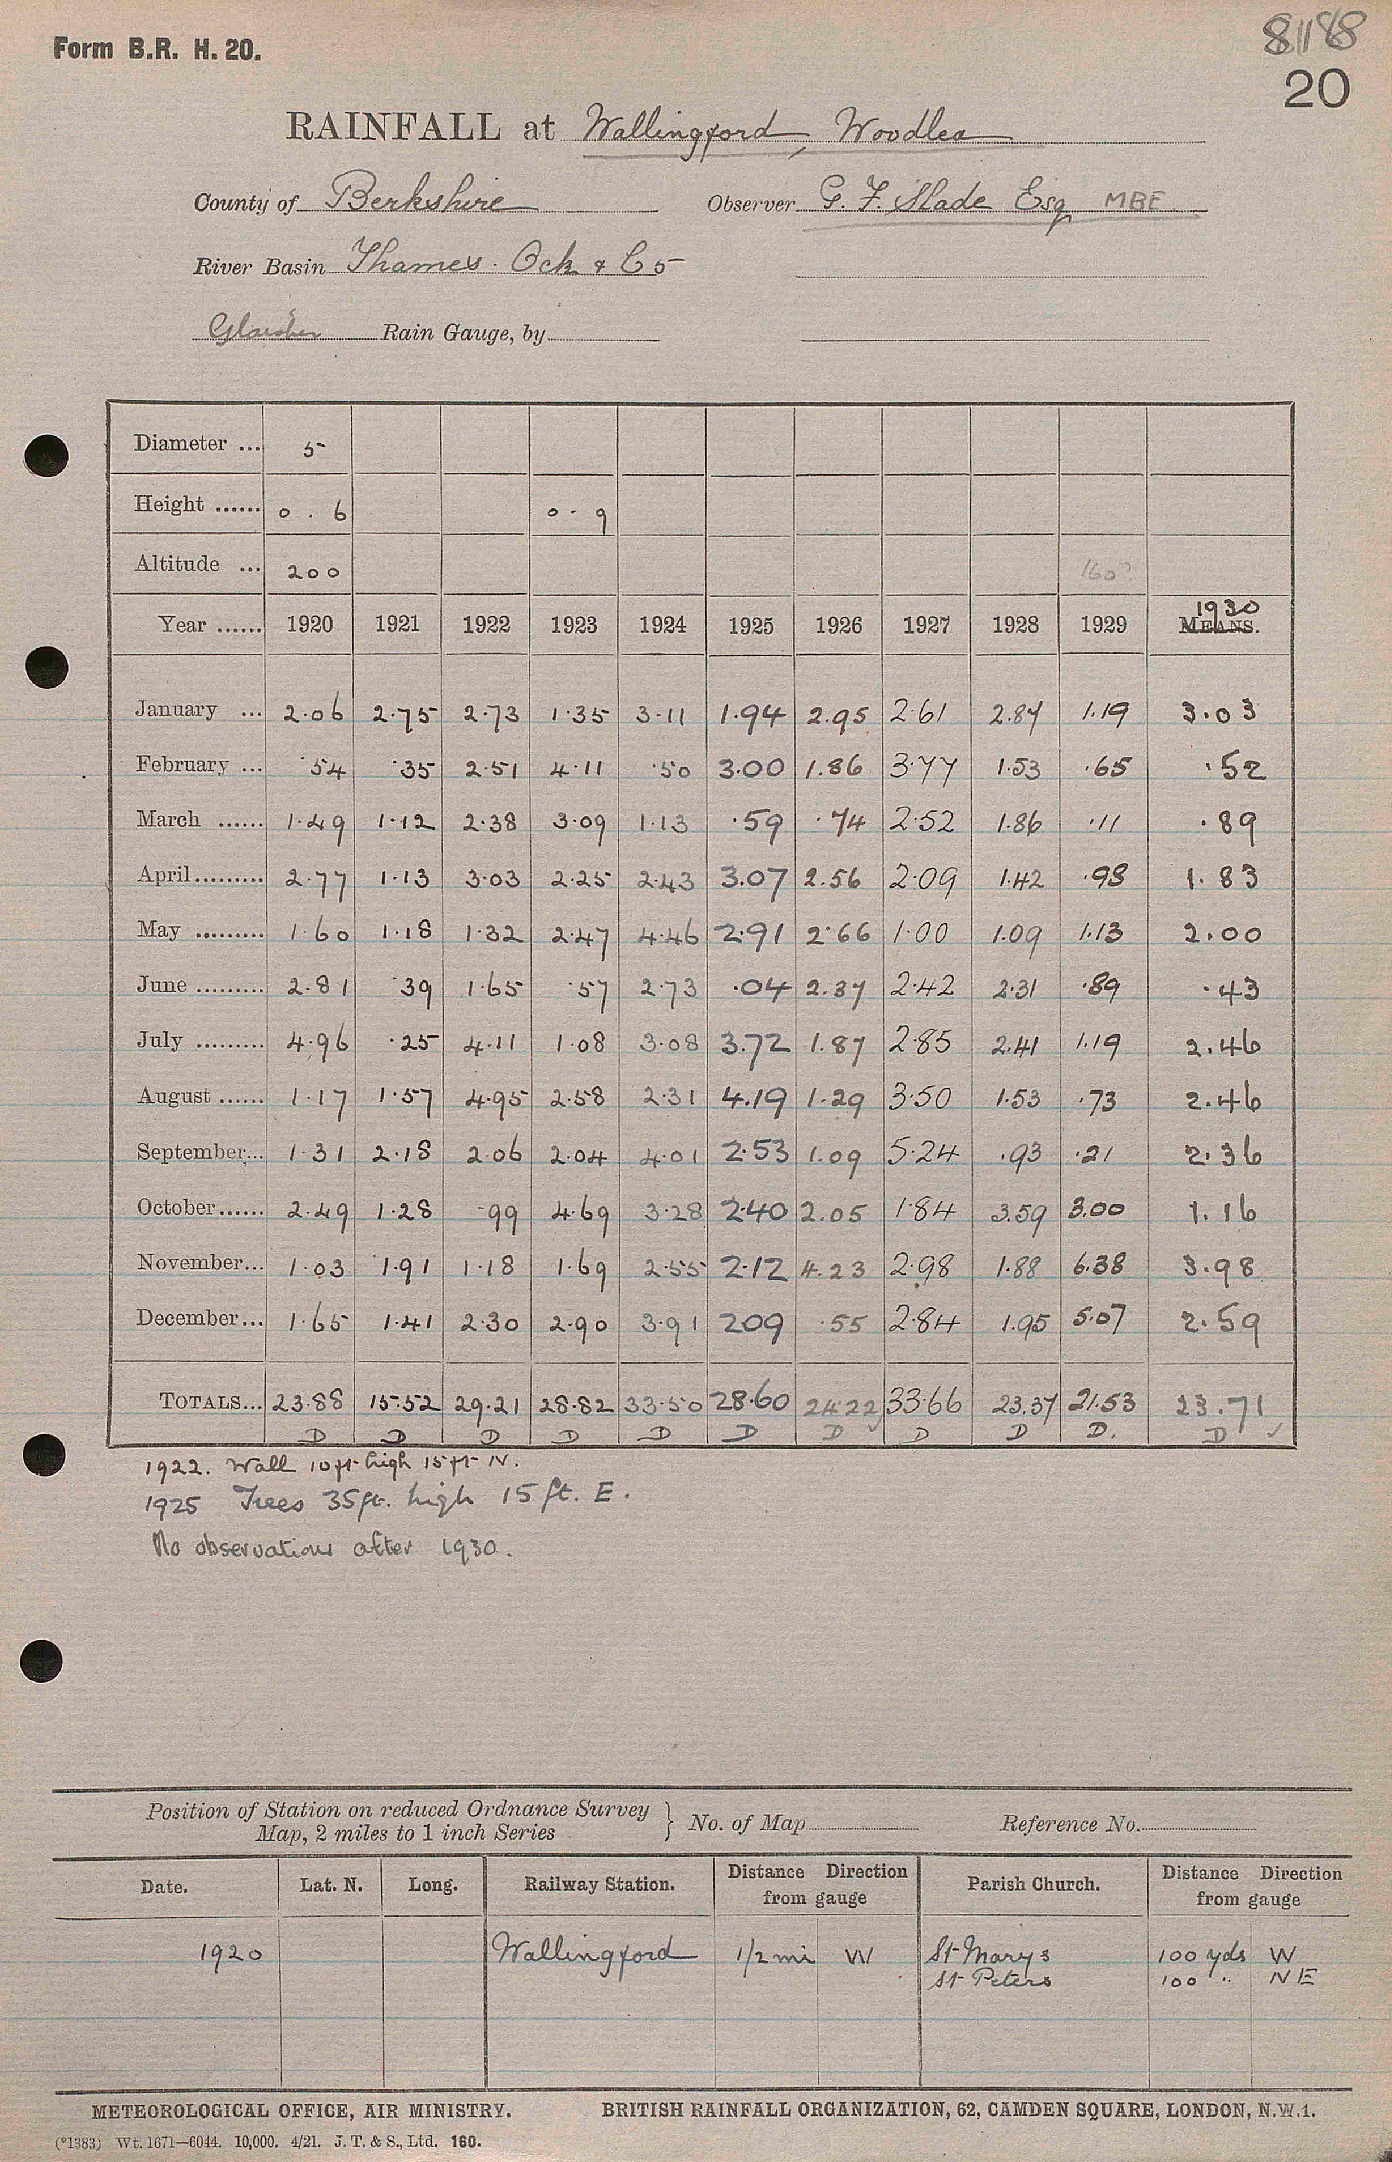 Form B.R. H. 20.
8118
20
RAINFALL at Wallingford, Woodlea
County of Berkshire Observer G. F. Slade Esq MBE
River Basin Thames. Ock & C5
Glaisher Rain Gauge, by
Diameter ... 5
Height ...... 0 . 6 0 . 9
Altitude ... 200 160?
Year ...... 1920 1921 1922 1923 1924 1925 1926 1927 1928 1929 1930 MEANS.
January ... 2.06 2.75 2.73 1.35 3.11 1.94 2.95 2.61 2.87 1.19 3.03
February ... .54 .35 2.51 4.11 .50 3.00 1.86 3.77 1.53 .65 .52
March ...... 1.49 1.12 2.38 3.09 1.13 .59 .74 2.52 1.86 .11 .89
April......... 2.77 1.13 3.03 2.25 2.43 3.07 2.56 2.09 1.42 .98 1.83
May ......... 1.60 1.18 1.32 2.47 4.46 2.91 2.66 1.00 1.09 1.13 2.00
June ......... 2.81 .39 1.65 .57 2.73 .04 2.37 2.42 2.31 .89 .43
July ......... 4.96 .25 4.11 1.08 3.08 3.72 1.87 2.85 2.41 1.19 2.46
August ...... 1.17 1.57 4.95 2.58 2.31 4.19 1.29 3.50 1.53 .73 2.46
September... 1.31 2.18 2.06 2.04 4.01 2.53 1.09 5.24 .93 .21 2.36
October...... 2.49 1.28 .99 4.69 3.28 2.40 2.05 1.84 3.59 3.00 1.16
November... 1.03 1.91 1.18 1.69 2.55 2.12 4.23 2.98 1.88 6.38 3.98
December... 1.65 1.41 2.30 2.90 3.91 209 .55 2.84 1.95 5.07 2.59
TOTALS... 23.88 15.52 29.21 28.82 33.50 28.60 24.22 33.66 23.37 21.53 23.71
D D D D D D D D D D. D ✓
1922. Wall 10ft high 15ft N.
1925 Trees 35ft. high 15 ft. E.
No observations after 1930.
Position of Station on reduced Ordnance Survey
Map, 2 miles to 1 inch Series } No. of Map Reference No.
Date. Lat. N. Long. Railway Station. Distance Direction from gauge Parish Church. Distance Direction from gauge
1920 Wallingford 1/2 mi W St Marys 100 yds W
St Peters 100 " NE
METEOROLOGICAL OFFICE, AIR MINISTRY. BRITISH RAINFALL ORGANIZATION, 62, CAMDEN SQUARE, LONDON, N.W.1.
(*1383) Wt. 1671—6044. 10,000. 4/21. J. T. & S., Ltd. 160.